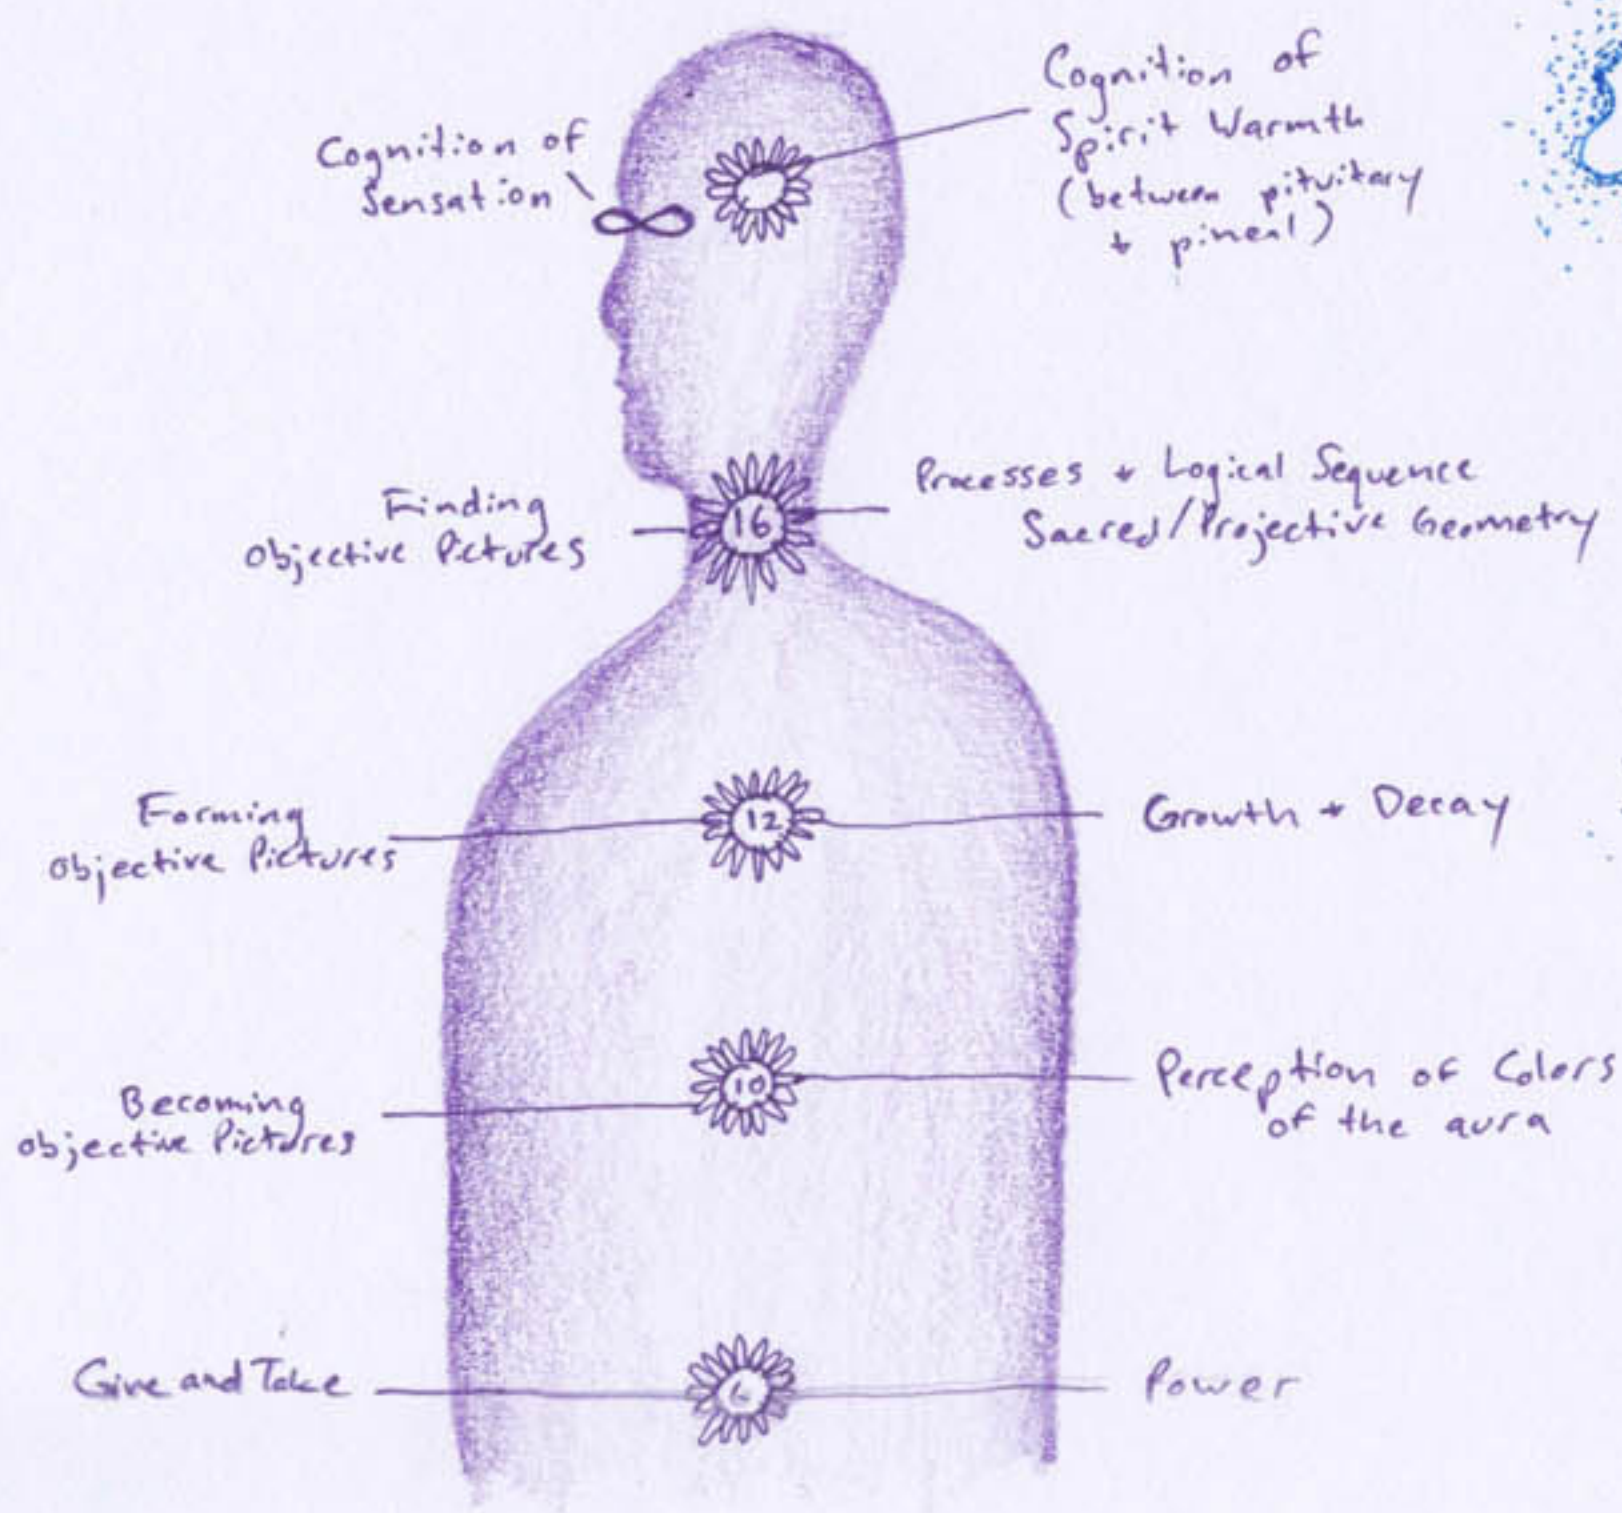 Cognition of
Sensation
Cognition of
Spirit Warmth
(between pituitary
+ pineal)
Finding
Objective Pictures
16
Processes + Logical Sequence
Sacred/Projective Geometry
Forming
Objective Pictures
12
Growth + Decay
Becoming
Objective Pictures
10
Perception of Colors
of the aura
Give and Take
6
Power